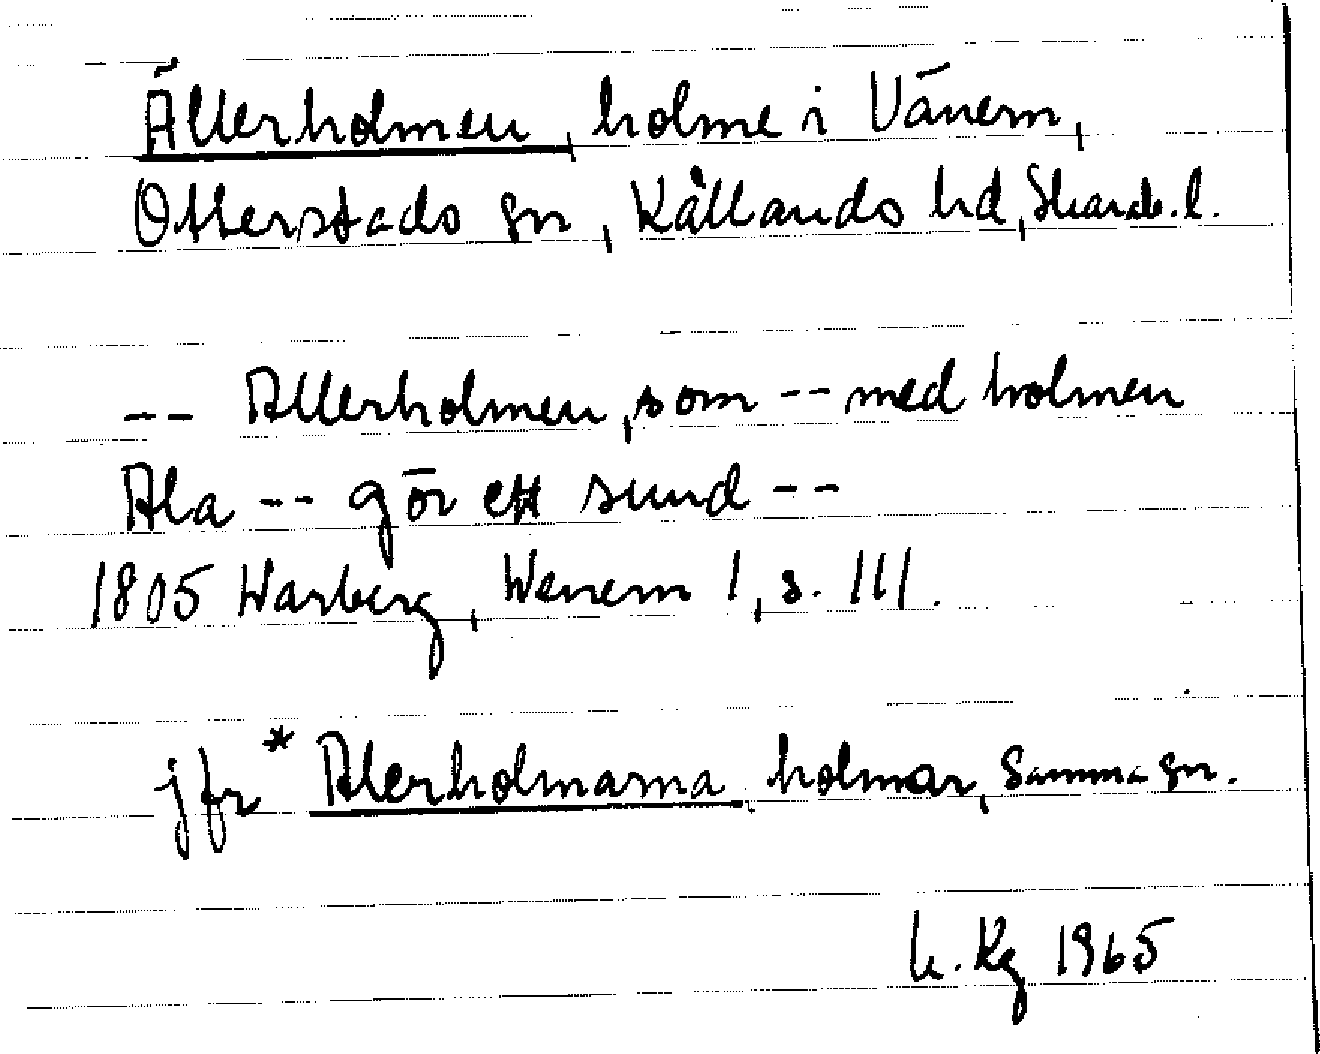 Ällerholmen, holme i Vänern,
Otterstads sn, Kållands hd, Skarab. l.
-- Allerholmen, som -- med holmen
Ala -- gör ett sund --
1805 Warberg, Wenern 1, s. 111.
jfr * Alerholmarna, holmar, samma sn.
K. Kg 1965